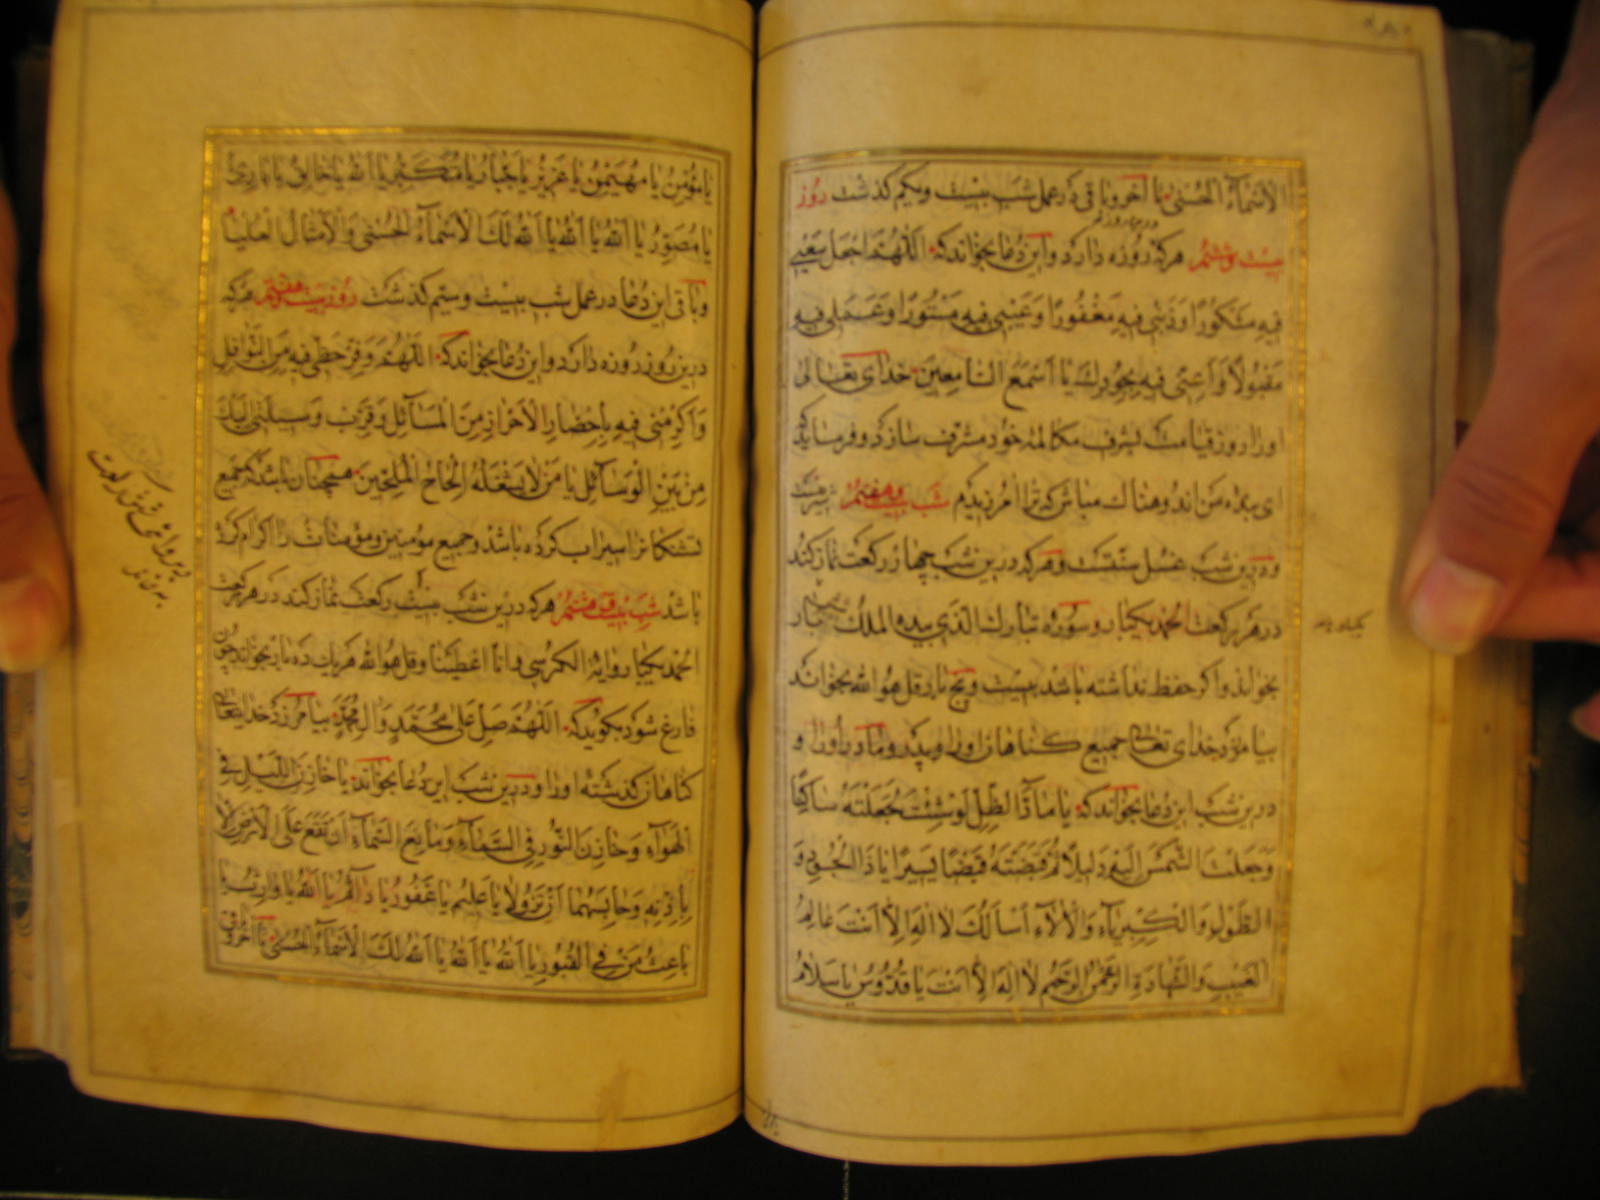 الاسماء الحسنی تا آخر و باقی در عمل شب بیست و یکم گذشت روز
بیست و ششم هر که روزه دارد و این دعا بخواند که اللهم اجعل سعیی
فیه مشکورا و ذنبی فیه مغفورا و عیبی فیه مستورا و عملی فیه
مقبولا یا اسمع السامعین خدای تعالی
او را روز قیامت بشرف مکالمه خود مشرف سازد و فرماید که
ای بنده من اندوهناک مباش که ترا آمرزیدم شب بیست و هفتم
و درین شب غسل سنتست و هر که درین شب چهار رکعت نماز کند
در هر رکعت الحمد یکبار و سوره تبارک الذی بیده الملک
بخواند و اگر حفظ نداشته باشد بیست و پنج بار قل هو الله بخواند
بیامرزد خدای تعالی جمیع گناهان او را و پدر و مادر او را و
درین شب این دعا بخواند که یا ماد الظل لو شئت لجعلته ساکنا
و جعلت الشمس علیه دلیلا ثم قبضته قبضا یسیرا یا ذا الجود و
الطول و الکبریاء و الالاء اسالک لا اله الا انت عالم
الغیب و الشهادة الرحمن الرحیم لا اله الا انت یا قدوس یا سلام
یا مؤمن یا مهیمن یا عزیز یا جبار یا متکبر یا الله یا خالق یا باری
یا مصور یا الله یا الله یا الله لک الاسماء الحسنی و الامثال العلیا
و باقی این دعا در عمل شب بیست و سیم گذشت روز بیست و هفتم هر که
درین روز روزه دارد و این دعا بخواند که اللهم وفر حظی فیه من النوافل
و اکرمنی فیه باحضار الاحراز من المسائل و قرب وسیلتی الیک
من بین الوسائل یا من لا یشغله الحاح الملحین همچنان باشد که جمیع
تشنگانرا سیراب کرده باشد و جمیع مؤمنین و مؤمنات را اکرام کرده
باشد شب بیست و هشتم هر که درین شب بیست رکعت نماز کند در هر رکعت
الحمد یکبار و ایة الکرسی و انا اعطینا و قل هو الله هر یک ده بار بخواند چون
فارغ شود بگوید که اللهم صل علی محمد و ال محمد بیامرزد خدایتعالی
گناهان گذشته او را و درین شب این دعا بخواند یا خازن اللیل فی
الهواء و خازن النور فی السماء و مانع السماء ان تقع علی الارض الا
باذنه و حابسهما ان تزولا یا علیم یا غفور یا دائم یا الله یا وارث یا
باعث من فی القبور یا الله یا الله یا الله لک الاسماء الحسنی تا آخر و باقی